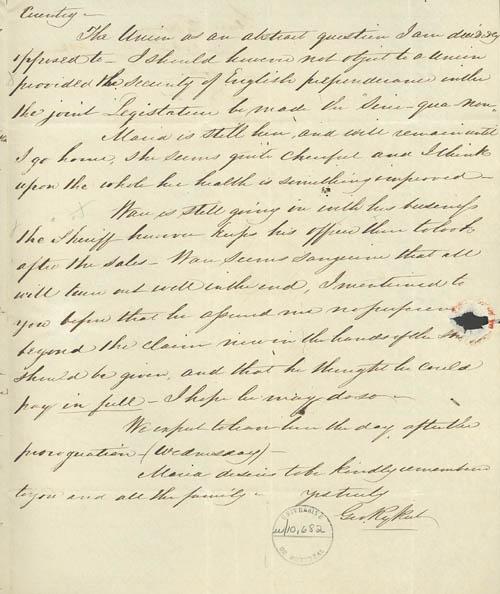 Country —
The Union as an abstract question I am decidedly
opposed to — I should however not object to a union
provided the security of English preponderance in the
the joint Legislature be made the "Sine-qua-non"
Maria is still here, and will remain until
I go home, she seems quite cheerful and I think
upon the whole her health is something improved —
Ware is still going in with his business
the Sheriff however keeps his officer there to look
after the sales — Ware seems sanguine that all
will turn out well in the end, I mentioned to
you before that he assured me no preference
beyond the claim now in the hands of the
should be given, and that he thought he could
pay in full — I hope he may do so —
We expect to leave here the day after the
prorogation (Wednesday) —
Maria desires to be kindly remembered
to you and all the family — yrs truly
Geo Rykert
UNIVERSITÉ
DE MONTRÉAL
10,682